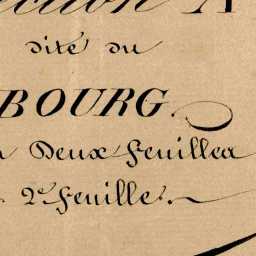 ection A
dite du
BOURG.
Deux Feuilles
2e Feuille.